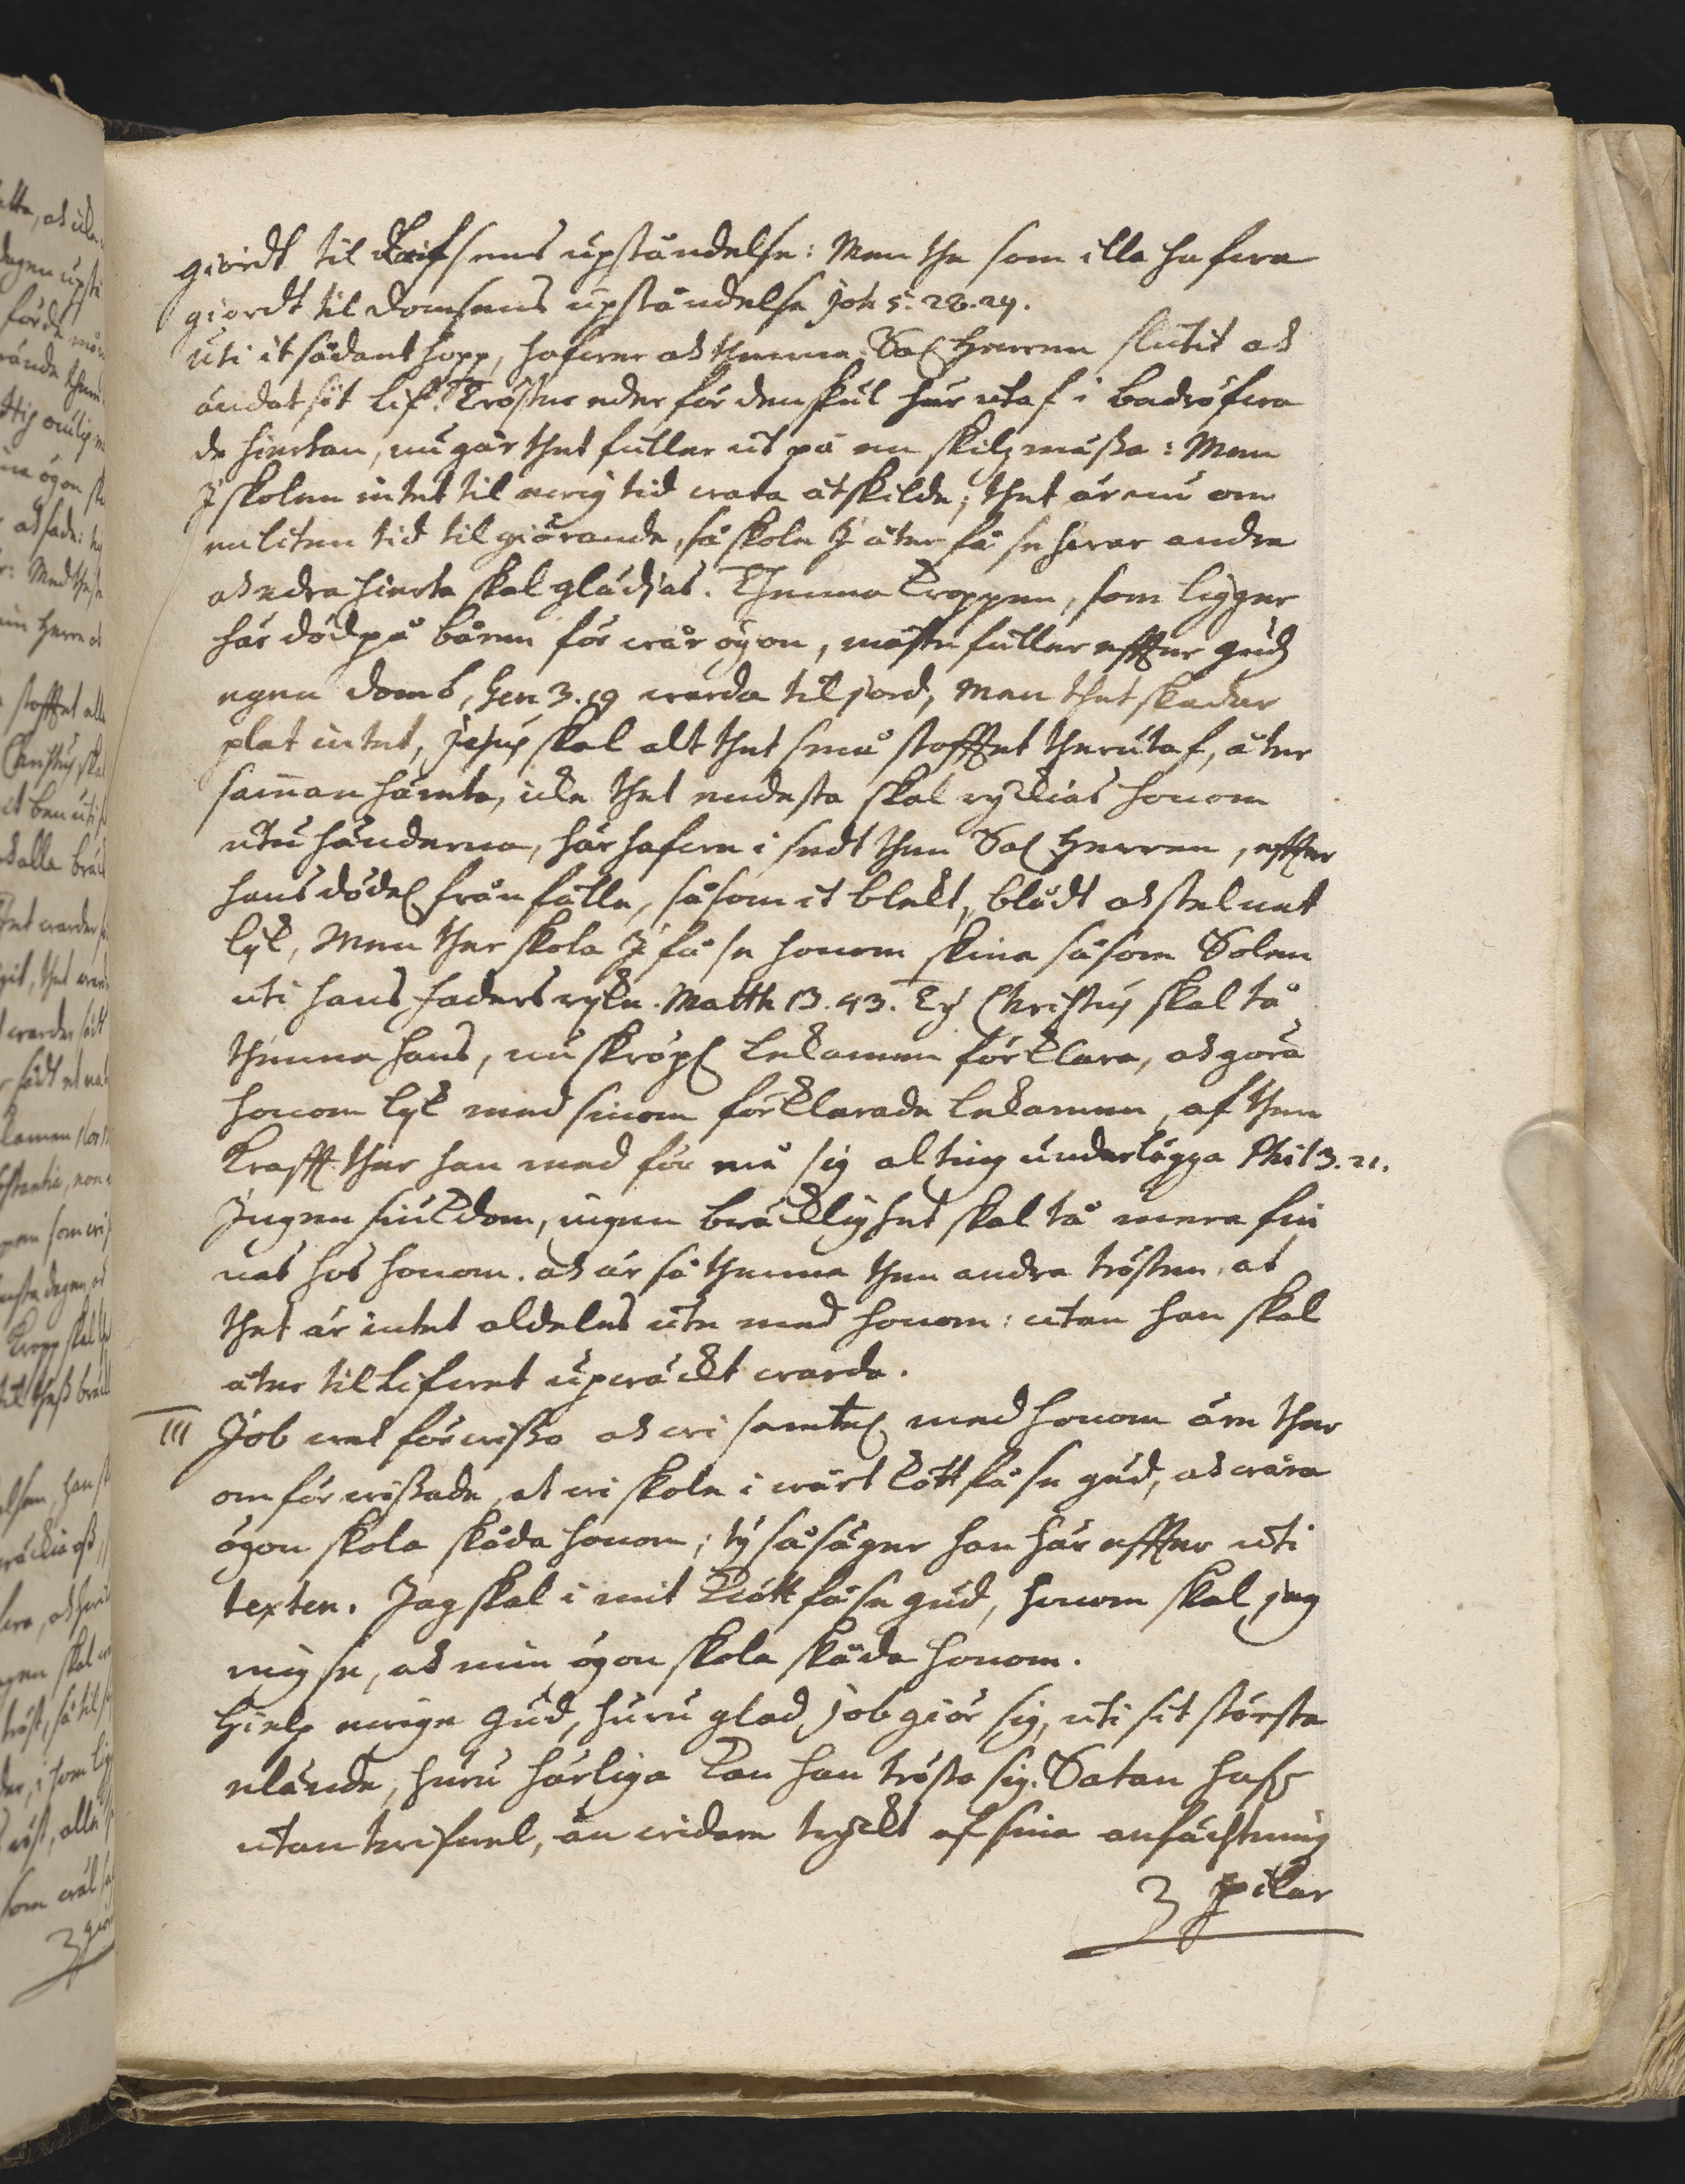 giordt til Lifsens upståndelse: Men the som illa hafwa
giordt til domsens upståndelse Joh 5. 28. 29.
Uti it sådant hopp, hafwer ock thenne Sal Herren slutit ock
ändat sit lif. Tröster eder för denskul här utaf i bedröfwa
de hiertan, nu går thet fuller ut på en skilzmässa: Men
I skolen intet til ewig tid wara åtskilde; thet är nu om
en liten tid til giörande, så skole I åter få se hwar andra
ock edra hierta skal glädjas. Thenna kroppen, som ligger
här död på båren för wår ögon, måste fuller effter Gudz
egen domb, Gen 3. 19 warda til jord, Men thet skadar
plat intet, Jesus skal alt thet små stofftet therutaf, åter
samman hämta, icke thet endesta skal ryckias honom
utu händerna, här hafwe i sedt then Sal Herren, effter
hans dödel frånfälle, såsom it blekt, blådt ock stelnat
lyk, Men ther skola I få se honom skina såsom Solen
uti hans faders ryke. Matth 13. 43. Ty Christus skal tå
thenna hans, nu skröpl lekamen förklara, ock göra
honom lyk med sinom förklarada lekamen, af then
krafft ther han med för må sig alting underlägga Phil 3. 21.
Ingen siukdom, ingen bräcklighet skal tå mera fin
nas hos honom. ock är så thenna then andra trösten, at
thet är intet aldeles ute med honom: utan han skal
åter til lifwet upwäckt warda.
III Job wet förwisso ock wi samtel med honom äre ther
om förwissade, at wi skole i wårt kött få se Gud, ock wåra
ögon skola skåda honom; ty så säger han här effter uti
texten. Jag skal i mit kiött få se Gud, honom skal jag
mig se, ock min ögon skola skåda honom.
Hielp ewige Gud, huru glad Job giör sig, uti sit största
elände, huru härliga kan han trösta sig. Satan haf
utan twifwel, än widare tryckt af sina anfächtning
3 pilar